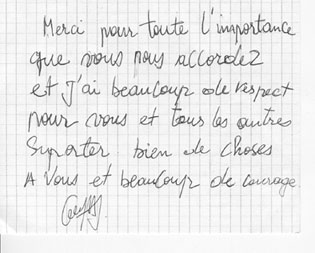 Merci pour toute l'importance
que vous nous accordez
et J'ai beaucoup de respect
pour vous et tous les autres
Suporter, bien de choses
A vous et beaucoup de courage.